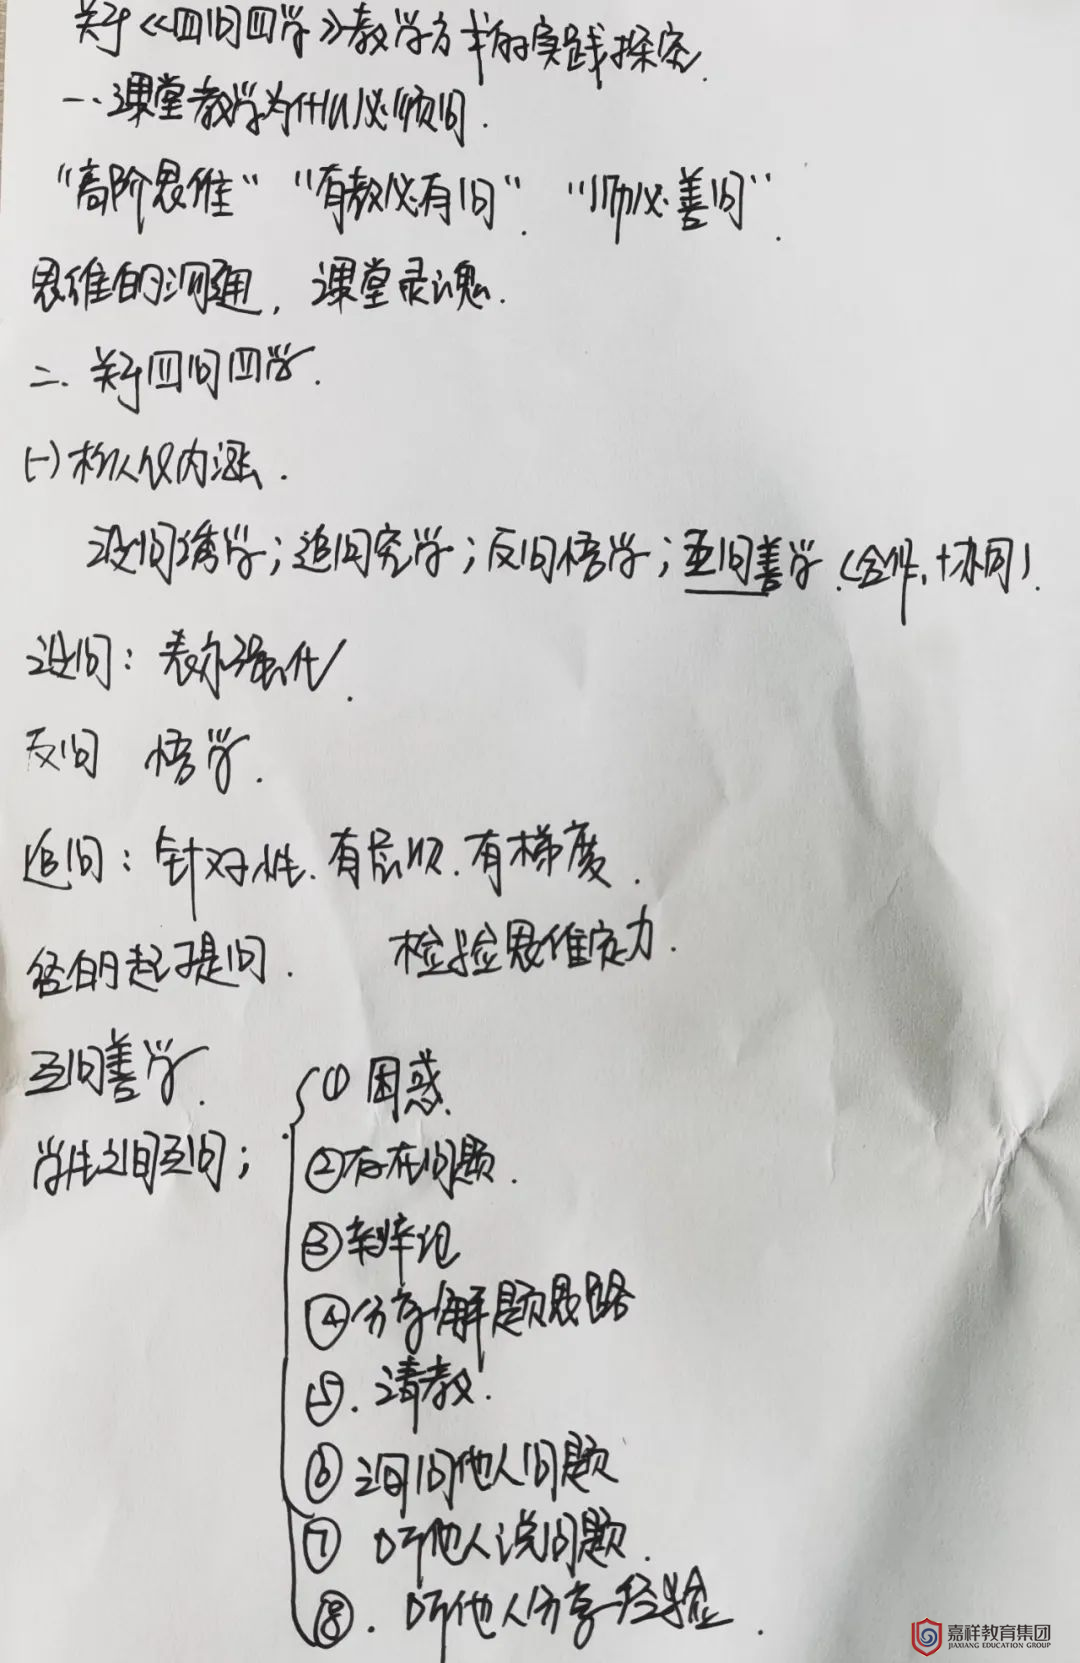 关于《四问四学》教学方式的实践探究.
一.课堂教学为什么必须问.
“高阶思维” “有教必有问”. “师必善问”.
思维的沟通, 课堂灵魂.
二. 关于四问四学.
(一) 核心及内涵.
设问诱学; 追问究学; 反问悟学; 互问善学. (合作, 协同).
设问: 表示强化.
反问 悟学.
追问: 针对性. 有层次. 有梯度.
提问. 检验思维定力.
互问善学.
学生之间互问;
① 困惑.
② 存在问题.
③ 辩论
④ 分享解题思路
⑤. 请教.
⑥ 询问他人问题
⑦ 听他人说问题.
⑧. 听他人分享经验.
嘉祥教育集团
JIAXIANG EDUCATION GROUP